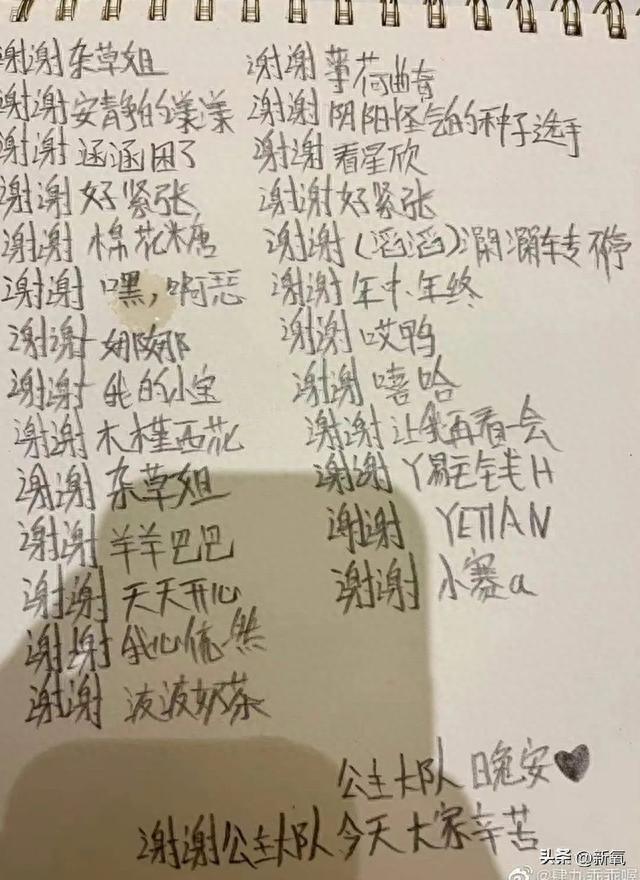 谢谢杂草姐
谢谢安静的漾漾
谢谢涵涵困了
谢谢好紧张
谢谢棉花米唐
谢谢嘿,啊恶
谢谢娜娜
谢谢我的小宝
谢谢木槿西花
谢谢杂草姐
谢谢羊羊巴巴
谢谢天天开心
谢谢我心依然
谢谢波波奶茶
谢谢荷曲奇
谢谢阴阳怪气的种子选手
谢谢看星欣
谢谢好紧张
谢谢(滔滔)车专不停
谢谢年中年终
谢谢哎鸭
谢谢嘻哈
谢谢让我再看一会
谢谢H
谢谢YETIAN
谢谢小赛a
公主大队晚安♥
谢谢公主大队今天大家辛苦
头条@新氧
@肆九乖乖喔